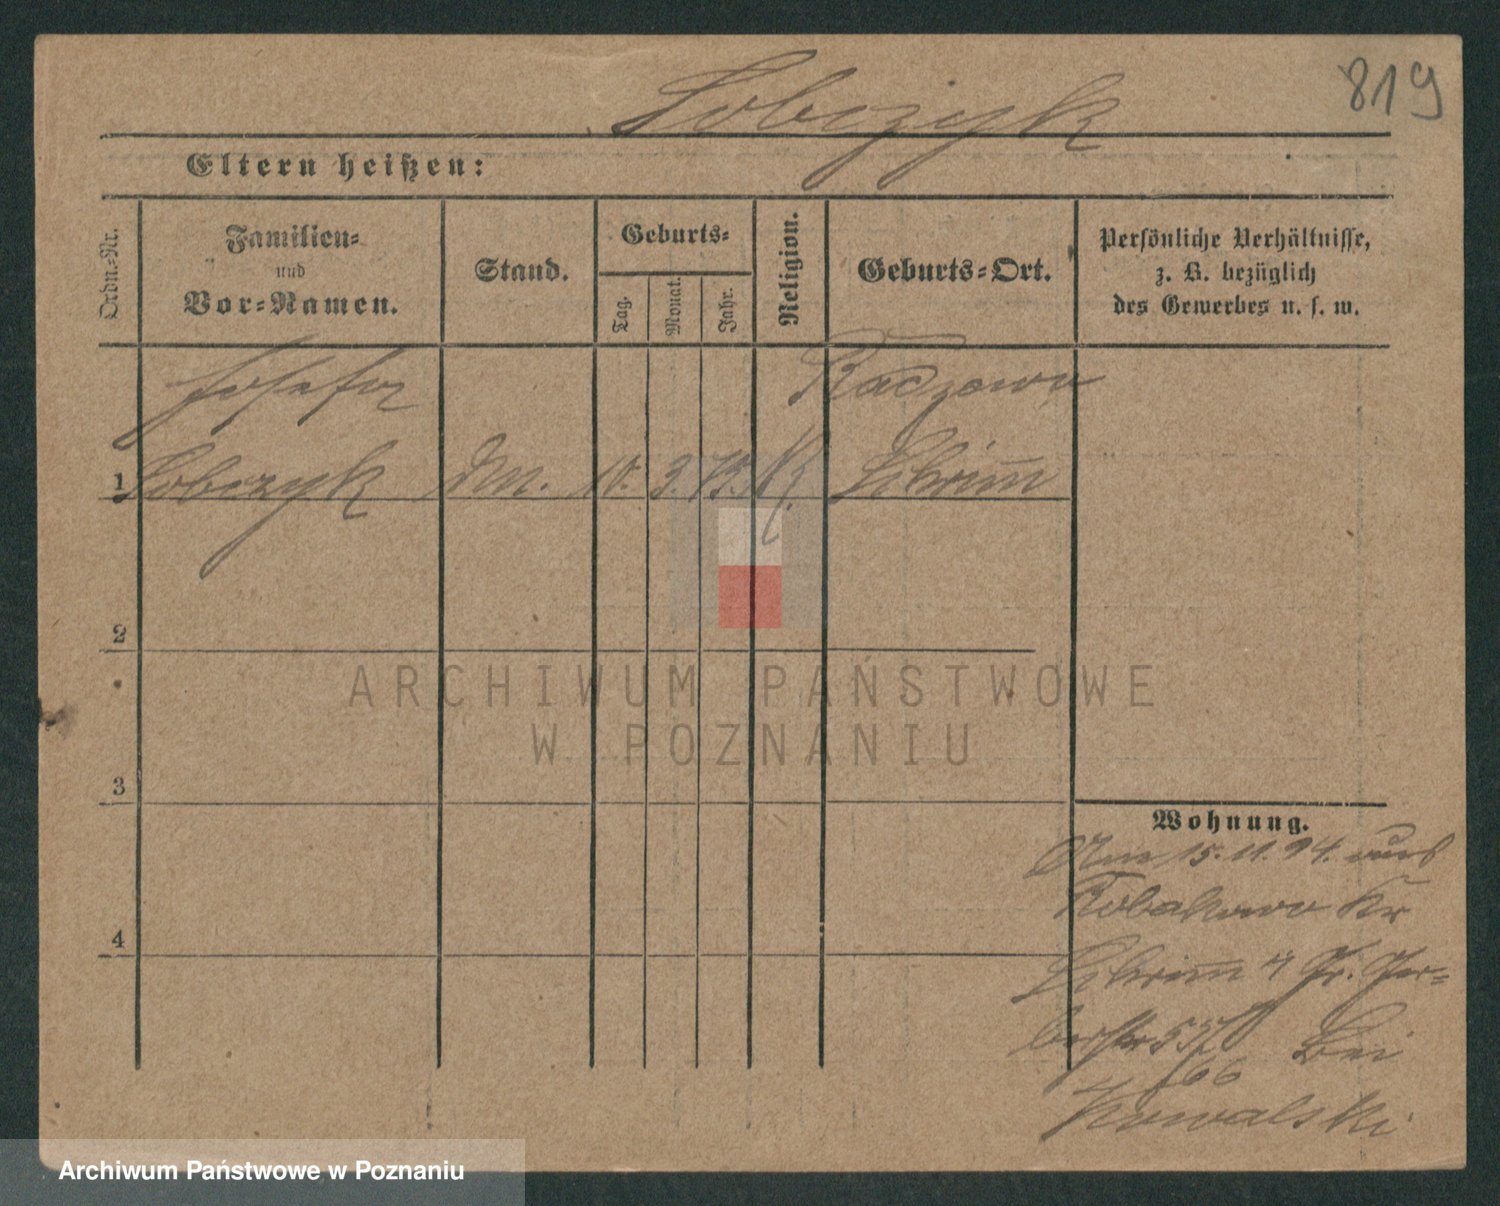 819
Sobczyk
Eltern heißen:
Ordn.-Nr.
Familien-
und
Vor-Namen.
Stand.
Geburts-
Tag.
Monat.
Jahr.
Religion.
Geburts-Ort.
Persönliche Verhältnisse,
z. B. bezüglich
des Gewerbes u. s. w.
Josefa Raczowo
1 Sobczyk 10. 3. 75. K. Schrimm
2
3
4
Wohnung.
Am 15.11.94. nach
Robakowo Kr
Schrimm Gr. Ger-
berstr 55/ bei
66
Kowalski
ARCHIWUM PAŃSTWOWE
W POZNANIU
Archiwum Państwowe w Poznaniu